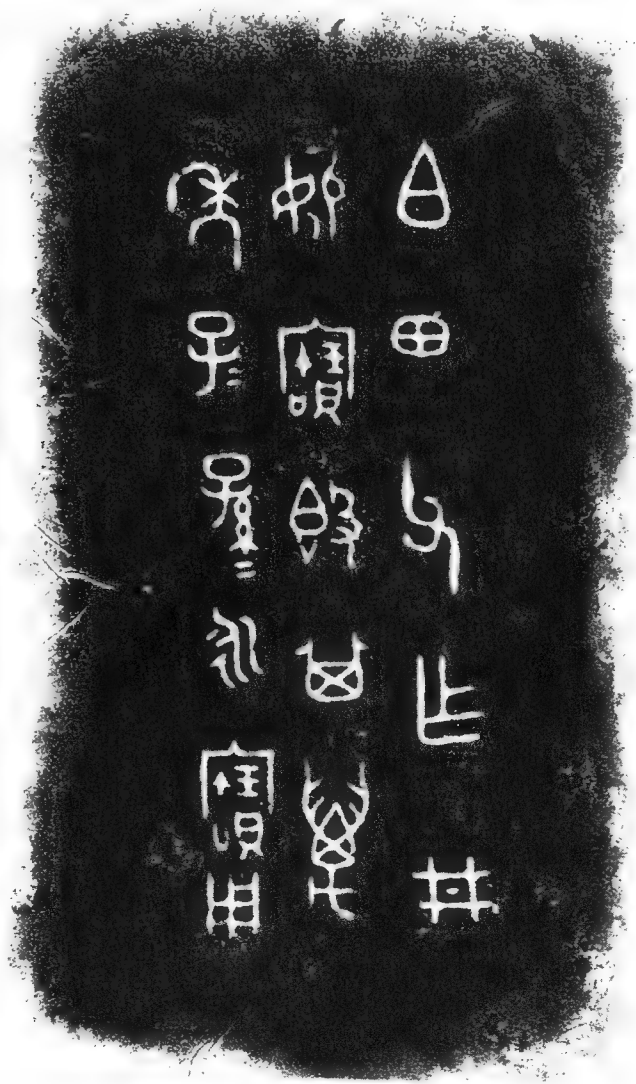 白田父乍井
㚸寶𣪘其萬
年子=孫=永寶用